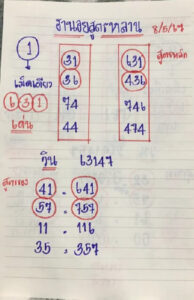 ฮานอยสูตรหลาน 8/5/67
1
เม็ดเดียว
6 3 1
เด่น
31 631 สูตรหลัก
36 436
74 746
44 474
กิน 63147
สูตรรอง
41 . 641
57 . 757
11 . 116
35 . 357